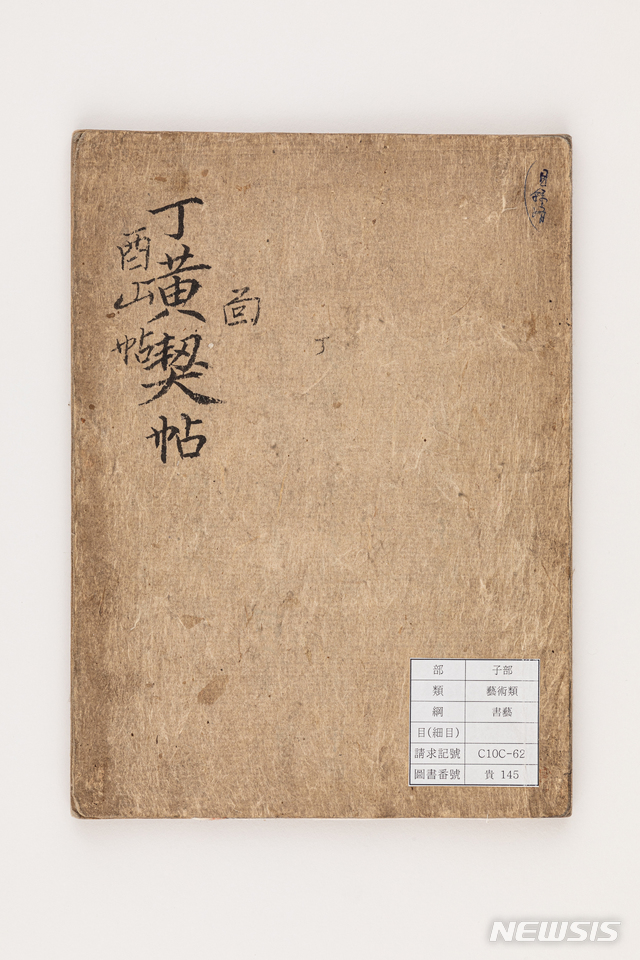 丁黄契帖
酉山帖
丁
部 子部
類 藝術類
綱 書藝
目(細目)
請求記號 C10C-62
圖書番號 貴 145
NEWSIS